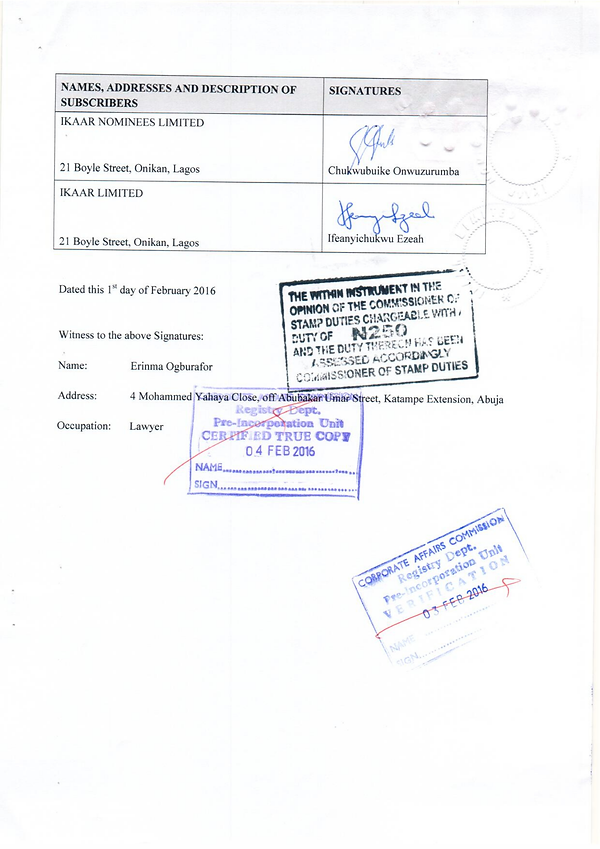 NAMES, ADDRESSES AND DESCRIPTION OF SUBSCRIBERS
SIGNATURES
IKAAR NOMINEES LIMITED
21 Boyle Street, Onikan, Lagos
Chukwubuike Onwuzurumba
IKAAR LIMITED
21 Boyle Street, Onikan, Lagos
Ifeanyichukwu Ezeah
Dated this 1st day of February 2016
THE WITHIN INSTRUMENT IN THE
OPINION OF THE COMMISSIONER OF
STAMP DUTIES CHARGEABLE WITH A
DUTY OF N250
AND THE DUTY THEREON HAS BEEN
ASSESSED ACCORDINGLY
COMMISSIONER OF STAMP DUTIES
Witness to the above Signatures:
Name: Erinma Ogburafor
Address: 4 Mohammed Yahaya Close, off Abubakar Umar Street, Katampe Extension, Abuja
Occupation: Lawyer
Registry Dept.
Pre-Incorporation Unit
CERTIFIED TRUE COPY
04 FEB 2016
NAME
SIGN
CORPORATE AFFAIRS COMMISSION
Registry Dept.
Pre-Incorporation Unit
VERIFICATION
03 FEB 2016
NAME
SIGN